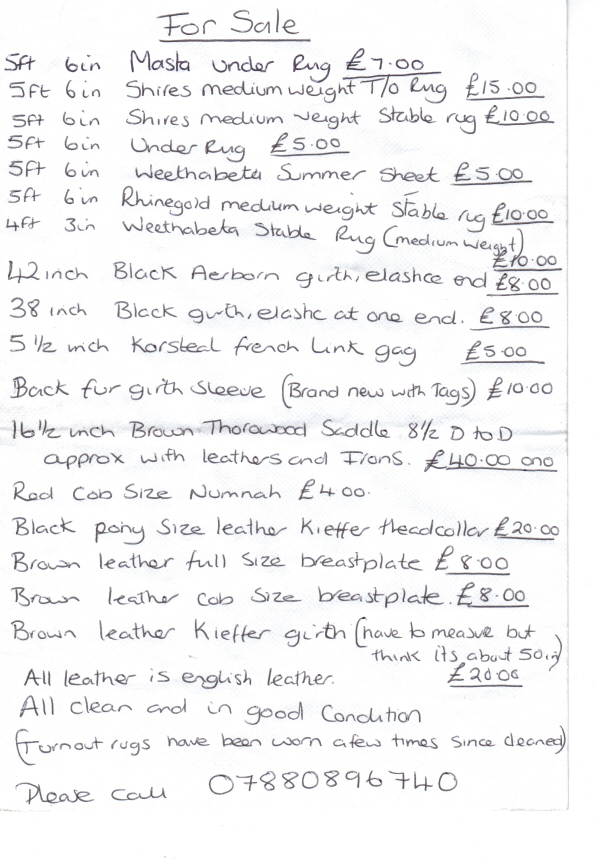 For Sale
5ft 6in Masta under Rug £7.00
5ft 6in Shires medium weight T/o Rug £15.00
5ft 6in Shires medium weight Stable rug £10.00
5ft 6in Under Rug £5.00
5ft 6in Weethabeta Summer Sheet £5.00
5ft 6in Rhinegold medium weight Stable rug £10.00
4ft 3in Weethabeta Stable Rug (medium weight)
£10.00
42 inch Black Aerborn girth, elastice end £8.00
38 inch Black girth, elastic at one end. £8.00
5 1/2 inch Korsteal french Link gag £5.00
Back fur girth Sleeve (Brand new with Tags) £10.00
16 1/2 inch Brown Thorowood Saddle 8 1/2 D to D
approx with leathers and Irons. £40.00 ono
Red Cob Size Numnah £4.00.
Black pony Size leather Kieffer Headcollar £20.00
Brown leather full Size breastplate £8.00
Brown leather cob Size breastplate. £8.00
Brown leather Kieffer girth (have to measure but
think its about 50in)
All leather is english leather. £20.00
All clean and in good Condition
(Turnout rugs have been worn a few times since cleaned)
Please call 07880896740